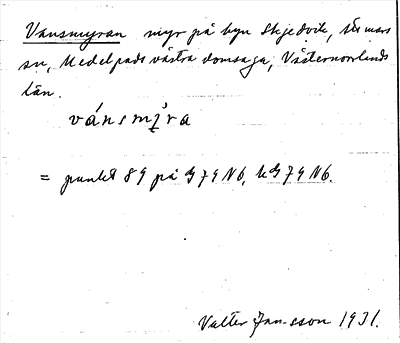 Vansmyran myr på byn Skjedvik, Stumars
sn, Medelpads västra domsaga, Västernorrlands
län.
vánsmy̜ra
= punkt 89 på G 79 Nb, kG 79 Nb.
Valter Jansson 1931.